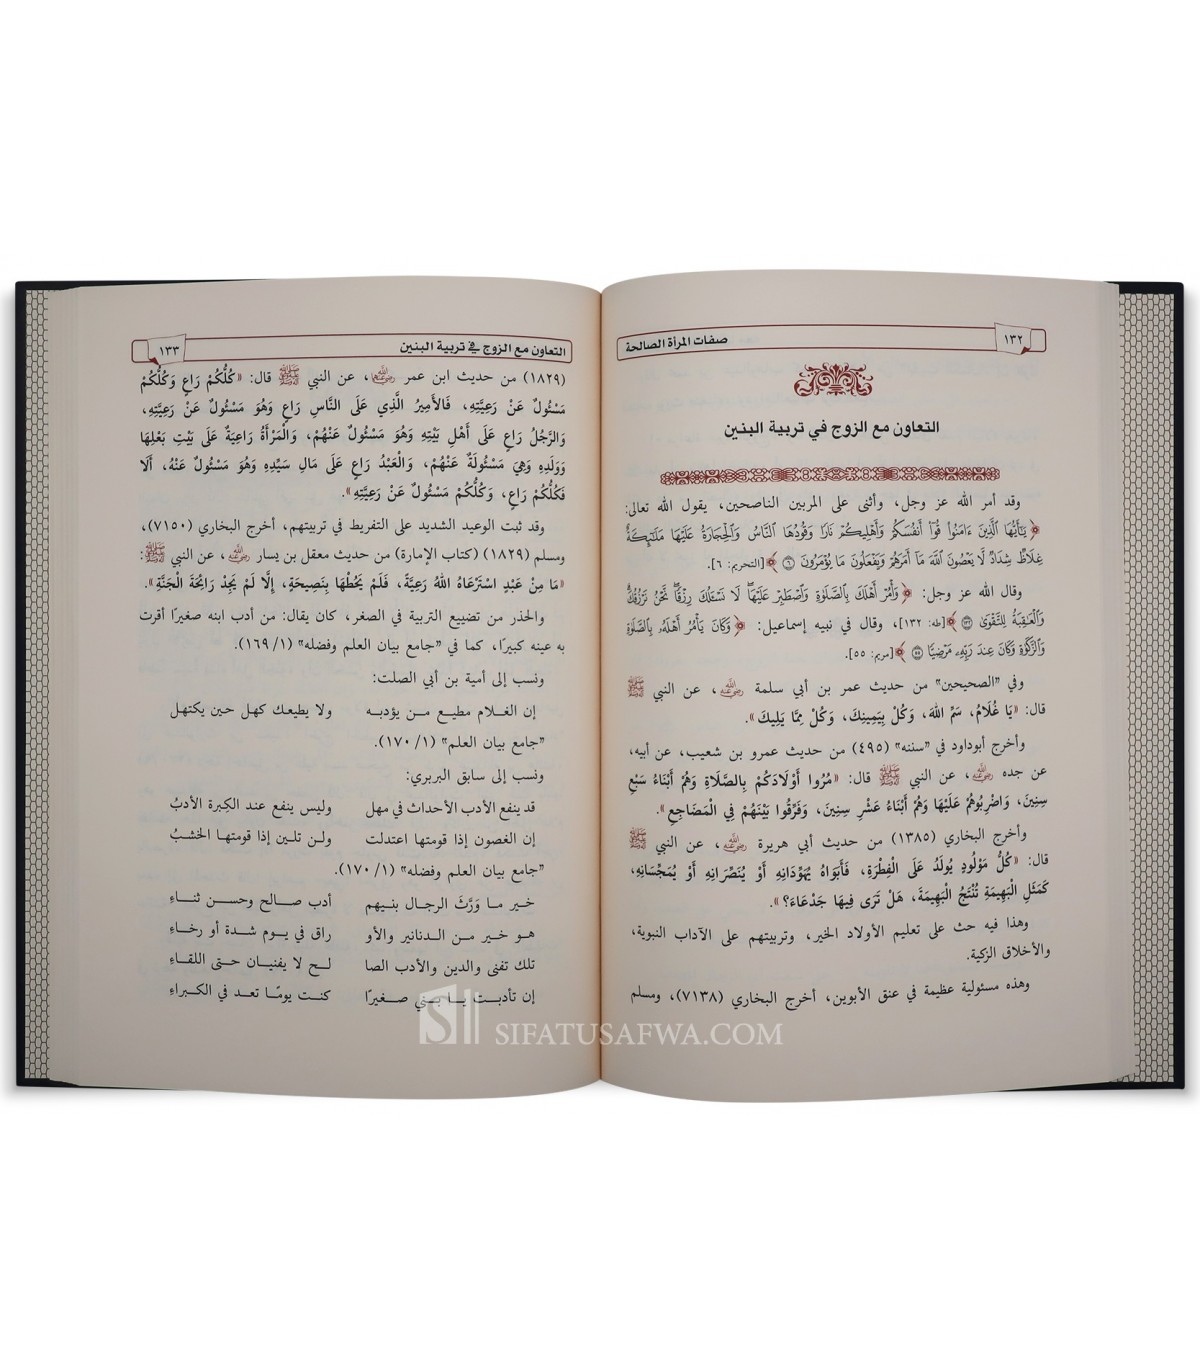 ١٣٢
صفات المرأة الصالحة
التعاون مع الزوج في تربية البنين
وقد أمر الله عز وجل، وأثنى على المربين الناصحين، يقول الله تعالى:
﴿يَٰٓأَيُّهَا ٱلَّذِينَ ءَامَنُوا۟ قُوٓا۟ أَنفُسَكُمْ وَأَهْلِيكُمْ نَارًا وَقُودُهَا ٱلنَّاسُ وَٱلْحِجَارَةُ عَلَيْهَا مَلَٰٓئِكَةٌ
غِلَاظٌ شِدَادٌ لَّا يَعْصُونَ ٱللَّهَ مَآ أَمَرَهُمْ وَيَفْعَلُونَ مَا يُؤْمَرُونَ ٦﴾ [التحريم: ٦].
وقال الله عز وجل: ﴿وَأْمُرْ أَهْلَكَ بِٱلصَّلَوٰةِ وَٱصْطَبِرْ عَلَيْهَا لَا نَسْـَٔلُكَ رِزْقًا نَّحْنُ نَرْزُقُكَ
وَٱلْعَٰقِبَةُ لِلتَّقْوَىٰ ١٣٢﴾ [طه: ١٣٢]، وقال في نبيه إسماعيل: ﴿وَكَانَ يَأْمُرُ أَهْلَهُۥ بِٱلصَّلَوٰةِ
وَٱلزَّكَوٰةِ وَكَانَ عِندَ رَبِّهِۦ مَرْضِيًّا ٥٥﴾ [مريم: ٥٥].
وفي "الصحيحين" من حديث عمر بن أبي سلمة رضي الله عنه، عن النبي ﷺ
قال: «يَا غُلَامُ، سَمِّ اللهَ، وَكُلْ بِيَمِينِكَ، وَكُلْ مِمَّا يَلِيكَ».
وأخرج أبوداود في "سننه" (٤٩٥) من حديث عمرو بن شعيب، عن أبيه،
عن جده رضي الله عنه، عن النبي ﷺ قال: «مُرُوا أَوْلَادَكُمْ بِالصَّلَاةِ وَهُمْ أَبْنَاءُ سَبْعِ
سِنِينَ، وَاضْرِبُوهُمْ عَلَيْهَا وَهُمْ أَبْنَاءُ عَشْرِ سِنِينَ، وَفَرِّقُوا بَيْنَهُمْ فِي الْمَضَاجِعِ».
وأخرج البخاري (١٣٨٥) من حديث أبي هريرة رضي الله عنه، عن النبي ﷺ
قال: «كُلُّ مَوْلُودٍ يُولَدُ عَلَى الْفِطْرَةِ، فَأَبَوَاهُ يُهَوِّدَانِهِ أَوْ يُنَصِّرَانِهِ أَوْ يُمَجِّسَانِهِ،
كَمَثَلِ الْبَهِيمَةِ تُنْتَجُ الْبَهِيمَةَ، هَلْ تَرَى فِيهَا جَدْعَاءَ؟».
وهذا فيه حث على تعليم الأولاد الخير، وتربيتهم على الآداب النبوية،
والأخلاق الزكية.
وهذه مسئولية عظيمة في عنق الأبوين، أخرج البخاري (٧١٣٨)، ومسلم
التعاون مع الزوج في تربية البنين
١٣٣
(١٨٢٩) من حديث ابن عمر رضي الله عنهما، عن النبي ﷺ قال: «كُلُّكُمْ رَاعٍ وَكُلُّكُمْ
مَسْئُولٌ عَنْ رَعِيَّتِهِ، فَالأَمِيرُ الَّذِي عَلَى النَّاسِ رَاعٍ وَهُوَ مَسْئُولٌ عَنْ رَعِيَّتِهِ،
وَالرَّجُلُ رَاعٍ عَلَى أَهْلِ بَيْتِهِ وَهُوَ مَسْئُولٌ عَنْهُمْ، وَالْمَرْأَةُ رَاعِيَةٌ عَلَى بَيْتِ بَعْلِهَا
وَوَلَدِهِ وَهِيَ مَسْئُولَةٌ عَنْهُمْ، وَالْعَبْدُ رَاعٍ عَلَى مَالِ سَيِّدِهِ وَهُوَ مَسْئُولٌ عَنْهُ، أَلَا
فَكُلُّكُمْ رَاعٍ، وَكُلُّكُمْ مَسْئُولٌ عَنْ رَعِيَّتِهِ».
وقد ثبت الوعيد الشديد على التفريط في تربيتهم، أخرج البخاري (٧١٥٠)،
ومسلم (١٨٢٩) (كتاب الإمارة) من حديث معقل بن يسار رضي الله عنه، عن النبي ﷺ:
«مَا مِنْ عَبْدٍ اسْتَرْعَاهُ اللهُ رَعِيَّةً، فَلَمْ يَحُطْهَا بِنَصِيحَةٍ، إِلَّا لَمْ يَجِدْ رَائِحَةَ الْجَنَّةِ».
والحذر من تضييع التربية في الصغر، كان يقال: من أدب ابنه صغيرًا أقرت
به عينه كبيرًا، كما في "جامع بيان العلم وفضله" (١/ ١٦٩).
ونسب إلى أمية بن أبي الصلت:
إن الغلام مطيع من يؤدبه ولا يطيعك كهل حين يكتهل
"جامع بيان العلم" (١/ ١٧٠).
ونسب إلى سابق البربري:
قد ينفع الأدب الأحداث في مهل وليس ينفع عند الكبرة الأدبُ
إن الغصون إذا قومتها اعتدلت ولن تلين إذا قومتها الخشبُ
"جامع بيان العلم وفضله" (١/ ١٧٠).
خير ما وَرَّثَ الرجال بنيهم أدب صالح وحسن ثناءِ
هو خير من الدنانير والأو راق في يوم شدة أو رخاءِ
تلك تفنى والدين والأدب الصا لح لا يفنيان حتى اللقاءِ
إن تأدبت يا بني صغيرًا كنت يومًا تعد في الكبراءِ
SIFATUSAFWA.COM